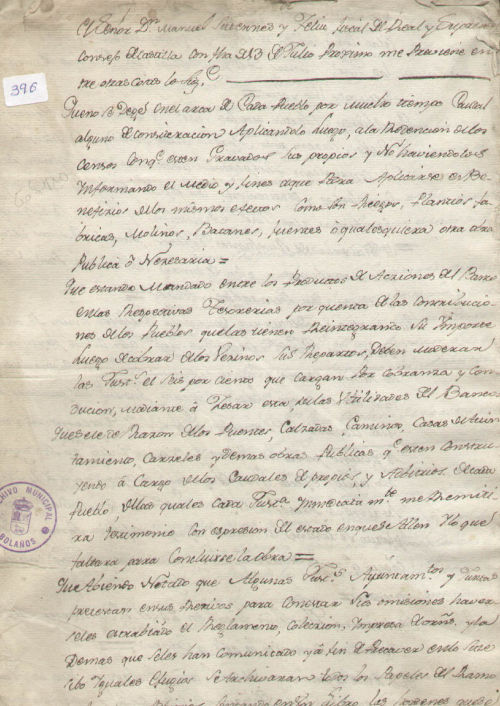 El Señor Dn. Manuel y Felix fiscal Del Real y Supremo
Consejo de Castilla con fha 13 de Julio Proximo me Previene en
tre otras cosas lo sigte.
396
Que no se Deje en el arca de Cada Pueblo por mucho tiempo Caudal
alguno de consideracion Aplicandolo luego, a la Redencion de los
Censos conqe. esten Gravados sus propios y No haviendolos
Informando el Medio y fines aque Podra Aplicarse en Be
neficios de los mismos efectos Como son Riegos, Plantios fa
bricas, Molinos, Batanes, fuentes ò qualesquiera otra obra
Publica ò Nezesaria =
Que estando Mandado entre los Productos de Acziones del Banco
en las Respectivas Tesorerias por quenta de las contribucio
nes de los Pueblos que las tienen Reintegrando su Importe
luego de cobrar de los Vezinos sus Repartos, Deben moderar
las Justs. el seis por ciento que cargan por cobranza y con
ducion, mediante à Zesar esta, en las Utilidades del Banco
Que se le de Razon de los Puentes, Calzadas, Caminos, Casas de Aiun
tamiento, Carzeles y demas obras Publicas qe. esten constru
yendo à Cargo de los Caudales de propios, y Arbitrios de cada
Pueblo, de las quales Cada Justa. Immediatamte. me Remiti
ra testimonio con expresion del estado en que se allen y lo que
faltara para Concluirse la obra =
ARCHIVO MUNICIPAL
BOLAÑOS
Que Abiendo Notado que Algunas Justs. Ayuntamtos. y Juntas
pretestan en sus Recursos para Conestar sus omisiones haver
seles estrabiado el Reglamento, coleccion, Impresa de orñs. y lo
Demas que se les han comunicado y à fin de Precaver en lo suce
sibo Iguales efugios se Archivaran todos los Papeles del Ramo
los ordenes que se